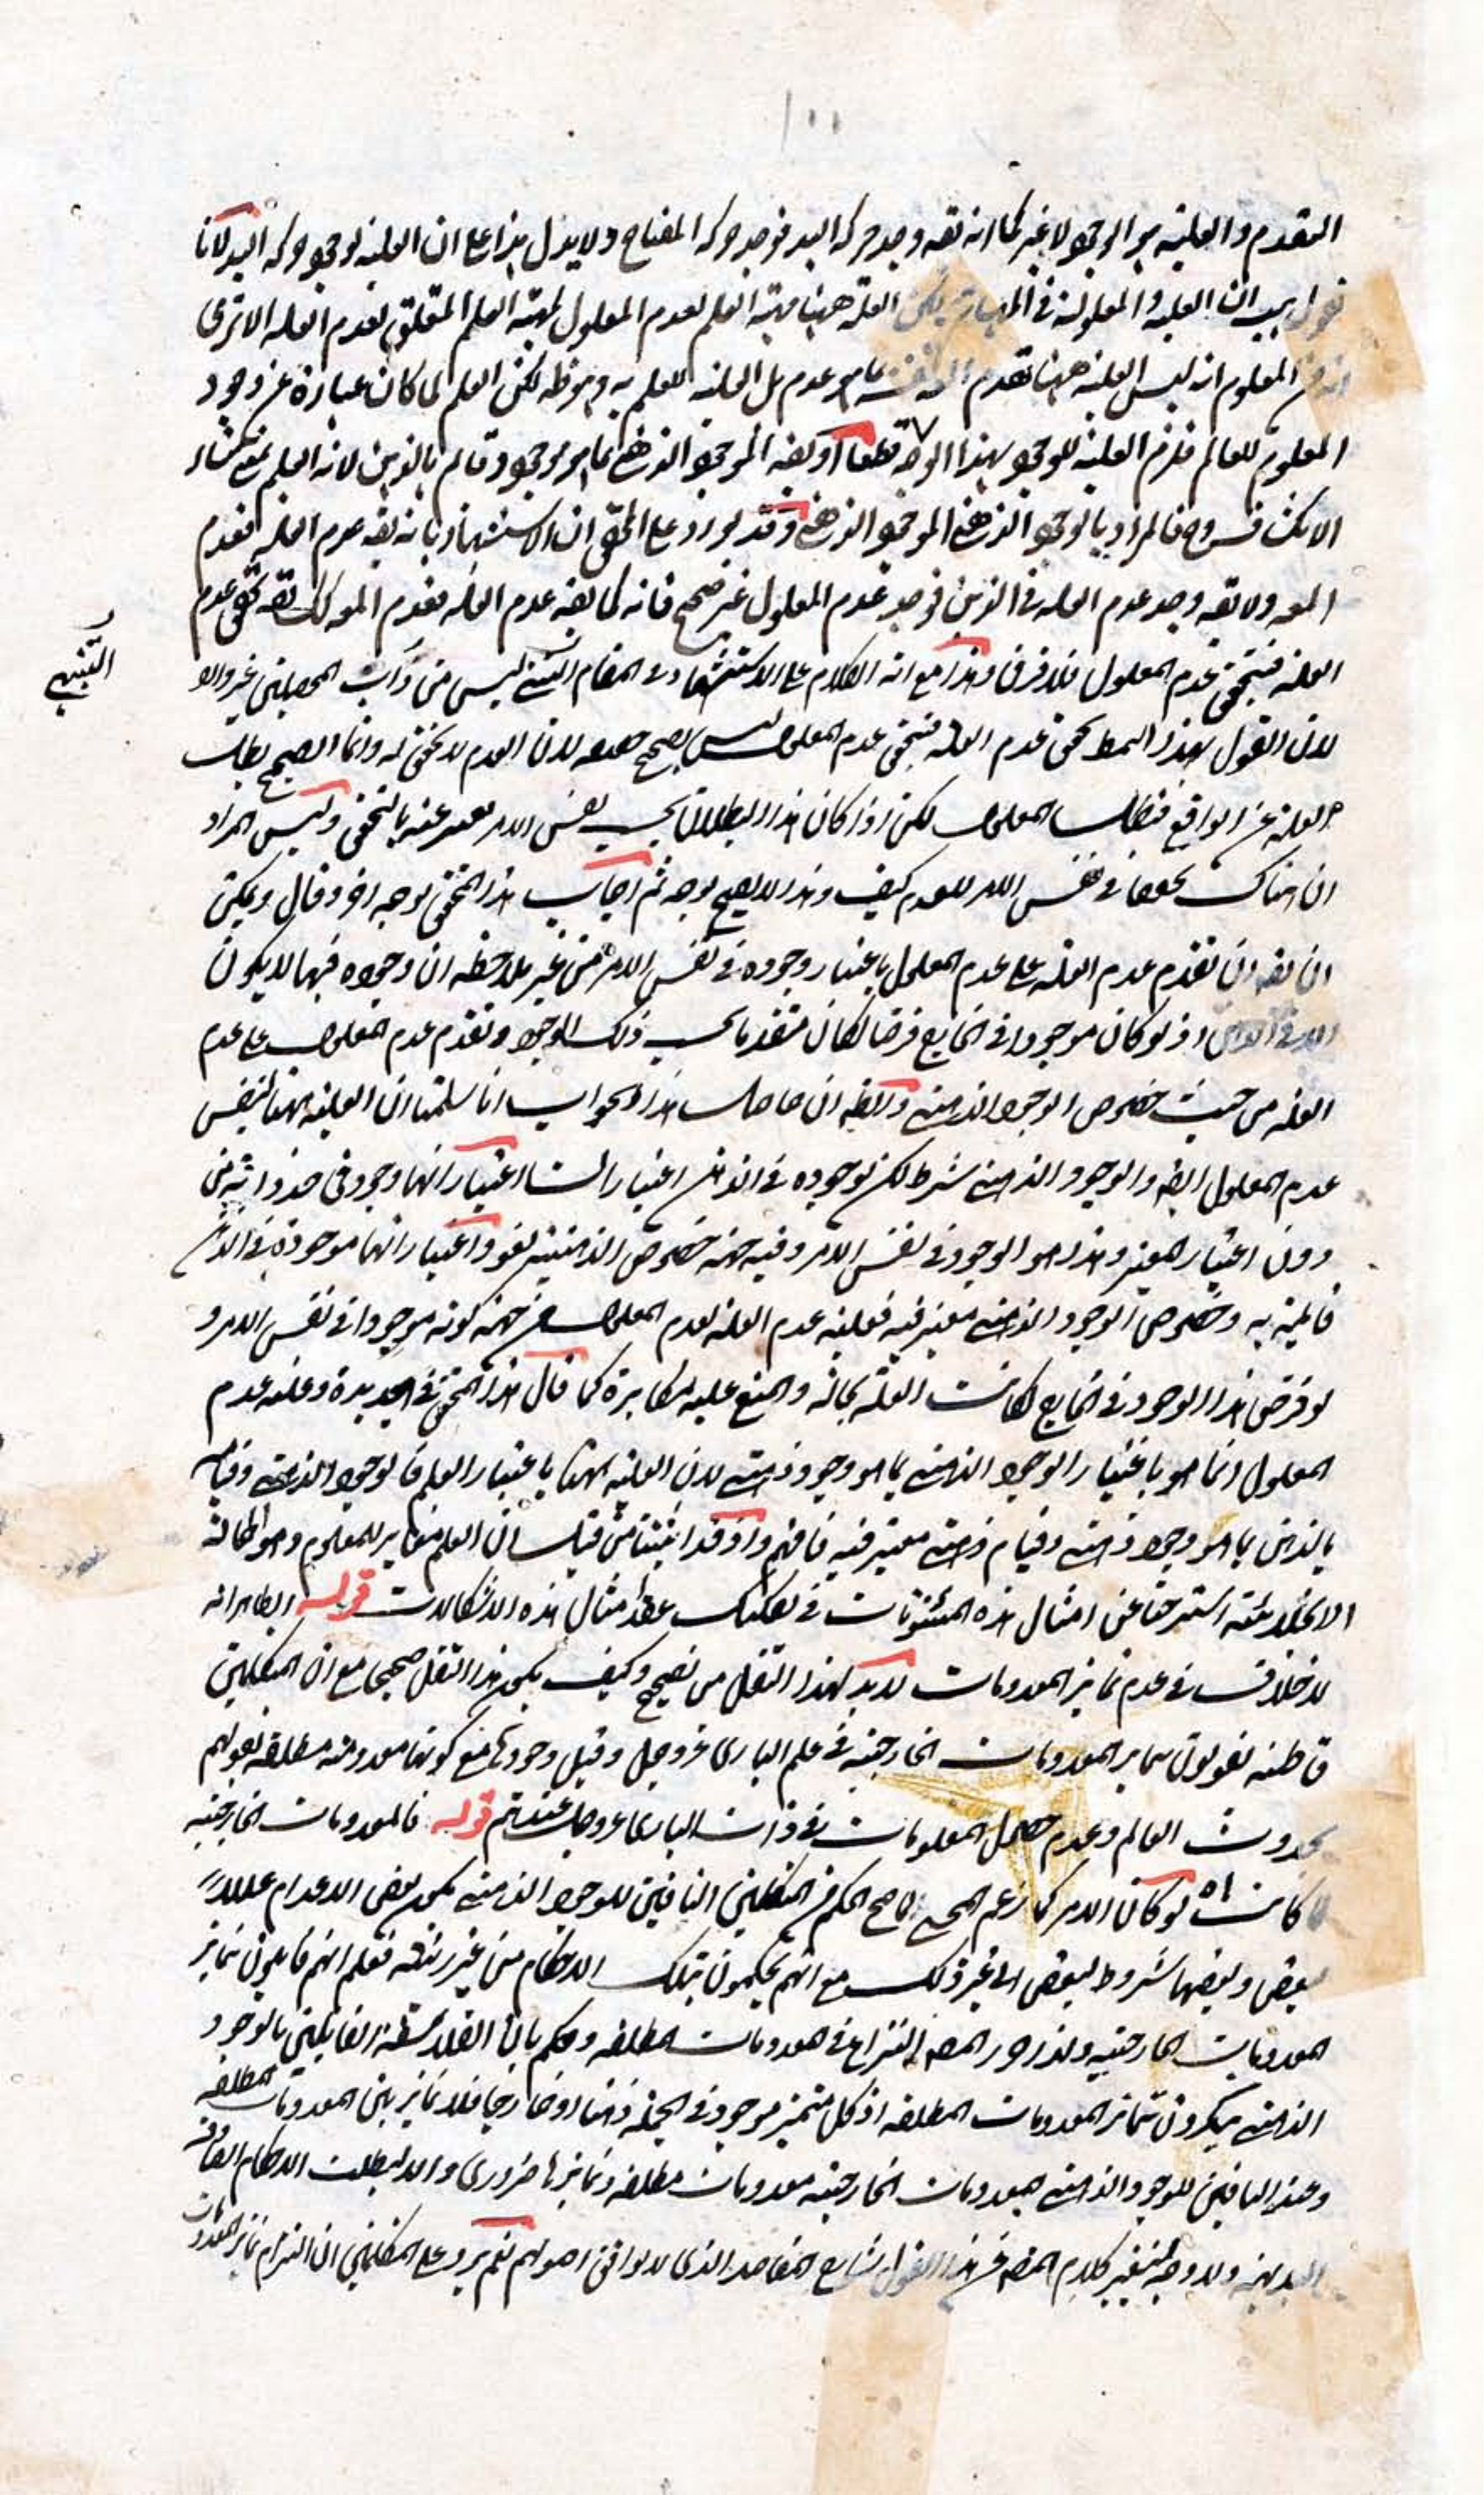 التقدم والعلية هو الوجود لا غير كما انه يقه وجد حركة اليد فوجد حركة المفتاح ولا يدل هذا على ان العلية لوجود حركة اليد لانا
نقول بعد ان العلية والمعلولية في المهيات لكن العلة ههنا مهية العلم لعدم المعلول لمهية العلم المتعلق بعدم العلة الا ترى
انه من المعلوم انه ليس العلية ههنا لعدم بما هو عدم بل العلية للعلم به وهو ظه لكن العلم لما كان عبارة عن وجود
المعلوم للعالم فلزم العلية للوجود بهذا الوجه قطعا او كفه الموجود الذهني بما هو موجود وقائم بالذهن لانه العلم
فالمراد بالوجود الذهني الموجود الذهني وقد يورد على المحقق ان الاستشهاد بانه يقه عدم العلة فعدم
المعه ولا يقه وجد عدم العلة في الذهن فوجد عدم المعلول غير صحيح فانه كما يقه عدم العلة فعدم المعه كك يقه تحقق عدم
العلة فتحقق عدم المعلول فلا فرق وهذا مع انه الكلام على الاستشهاد وفي المقام ليس من داب المحصلين غير وارد
التنبيهي
لان القول بهذا النمط تحقق عدم العلة فتحقق عدم المعلول ليس بصحيح لان العدم لا تحقق له وانما الصحيح بطلت
العلة عن الواقع فبطلت المعلول لكن اذا كان هذا البطلان بحسب نفس الامر عنه بالتحقق وليس المراد
ان هناك تحققا في نفس الامر للعدم كيف وهذا لا يصح بوجه ثم اجاب هذا المحقق بوجه اخر وقال ويمكن
ان يقه ان تقدم عدم العلة على عدم المعلول باعتبار وجوده في نفس الامر من غير ملاحظة ان وجوده فيها لا يكون
الا في الذهن اذ لو كان موجودا في الخارج فرضا لكان متقدما بحسب ذلك الوجود وتقدم عدم المعلول على عدم
العلة من حيث خصوص الوجود الذهني والظه ان حاصل هذا الجواب انا سلمنا ان العلية ههنا لنفس
عدم المعلول ايضه والوجود الذهني شرط لكن لوجوده في الذهن اعتبارات اعتبار انها وجود في حد ذاته من
دون اعتبار وهذا هو الوجود في نفس الامر وفيه جهة خصوص الذهنية لغو واعتبار انها موجودة في الذهن
قائمة به وخصوص الوجود الذهني معتبر فيه فعلية عدم العلة لعدم المعلول من جهة كونه موجودا في نفس الامر و
لو فرض هذا الوجود في الخارج لكانت العلية بحاله والمنع عليه مكابرة كما قال هذا المحقق في الجديدة وعلية عدم
المعلول انما هو باعتبار الوجود الذهني بما هو وجود ذهني لان العلية ههنا باعتبار العلم فالوجود الذهني وقيامه
بالذهن بما هو وجود ذهني وقيام ذهني معتبر فيه فافهم واذ قد اثبتنا من قبل ان العلم مغاير للمعلوم وهو الحالة
الانجلائية استرحنا عن امثال هذه في امثال هذه الاشكالات قوله الظاهر انه
لا خلاف في عدم تمايز المعدومات لا بد لهذا النقل من تصحيح وكيف يكون هذا النقل صحيحا مع ان المتكلمين
قاطبة يقولون بتمايز المعدومات الخارجية في علم الباري عز وجل وقبل وجودها مع كونها معدومة مطلقة لقولهم
بحدوث العالم وعدم حصول المعلومات في ذات الباري عز وجل عندهم قوله فالمعدومات الخارجية
لما كانت اه لو كان الامر كما زعم المحشي لما صح الحكم من المتكلمين النافين للوجود الذهني بكون بعض الاعدام عللا
لبعض وبعضها شروط لبعض الى غير ذلك مع انهم يحكمون بتلك الاحكام من غير ريبة فعلم انهم قائلون بتمايز
المعدومات الخارجية ولذا حرر المصه النزاع في المعدومات المطلقة وحكم بان الفلاسفة القائلين بالوجود
الذهني ينكرون تمايز المعدومات المطلقة اذ كل متميز موجود في الجملة ذهنا او خارجا فلا تمايز بين المعدومات المطلقة
وعند النافين للوجود الذهني المعدومات الخارجية معدومات مطلقة وتمايزها ضروري والا لبطلت الاحكام الصادقة
البديهية ولا وجه لتغيير كلام المصه عن هذا القول شارح المقاصد الذي لا يوافق اصولهم نعم يرد على المتكلمين ان التزام تمايز المعدومات